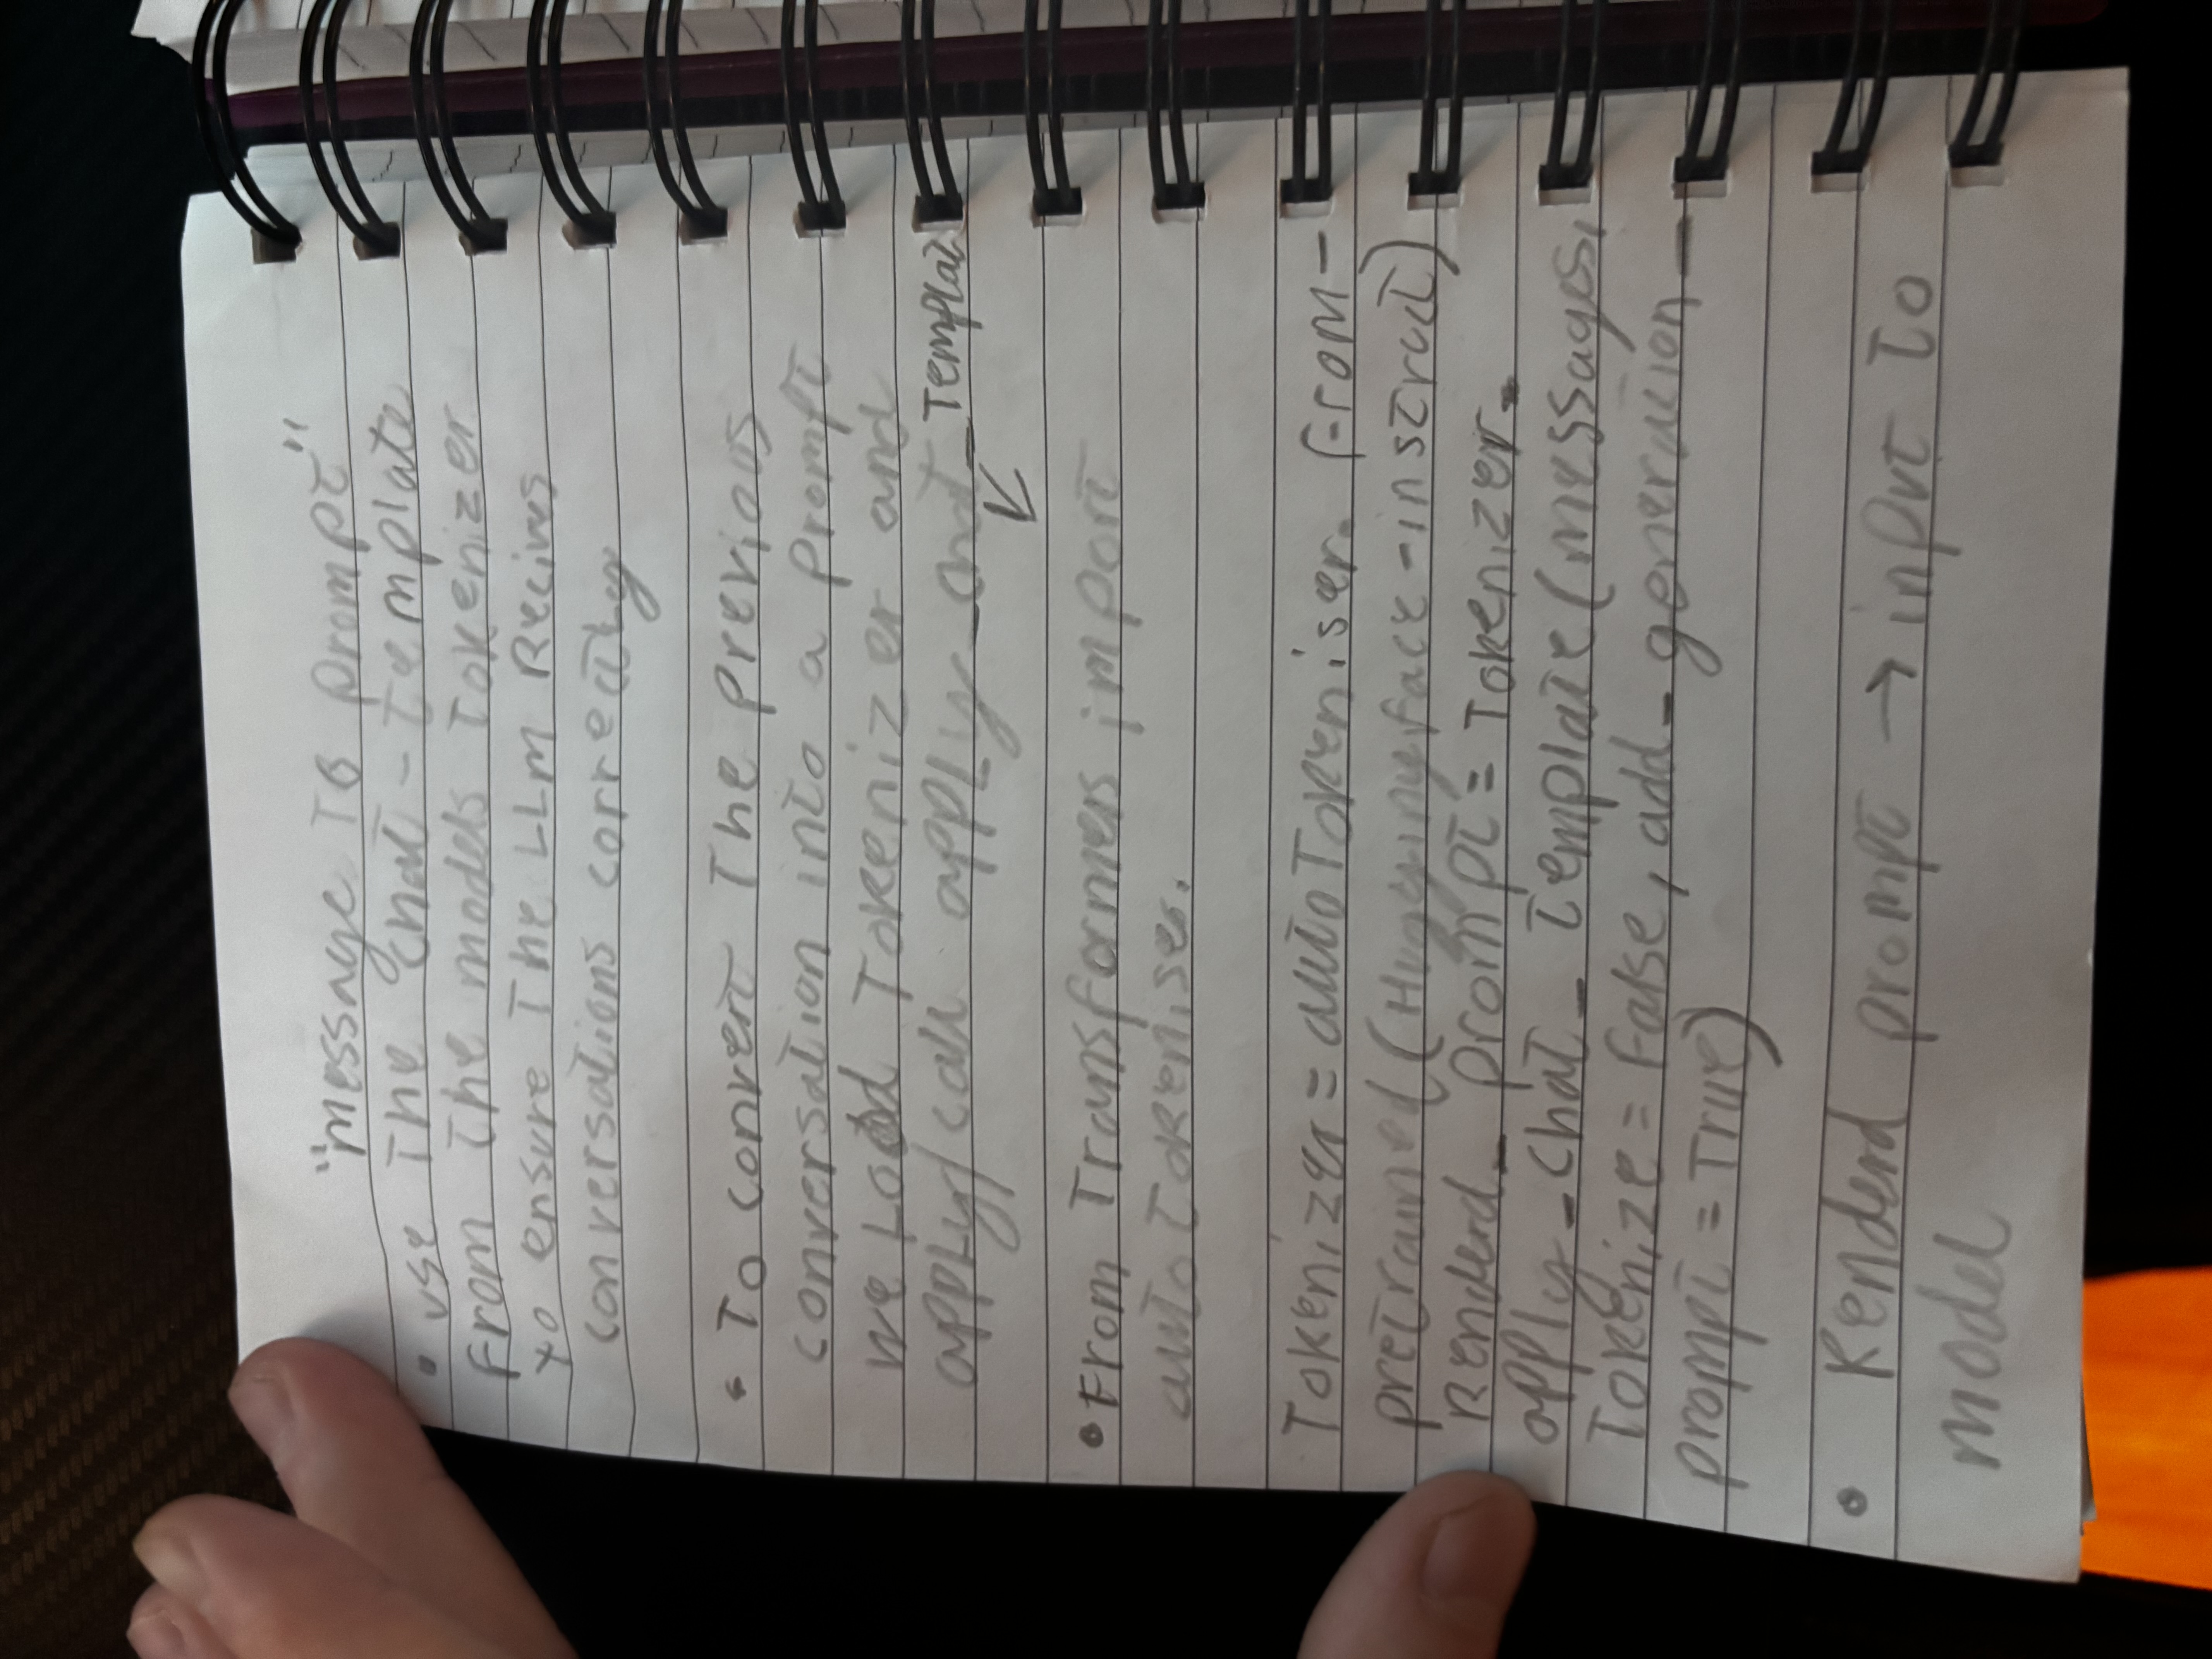 "message To prompt"
• use The chat-template
From The models Tokenizer
to ensure The LLm Recives
conversations correctly
• To convert The previous
conversation into a prompt
we Load Tokenizer and
apply/call apply_chat_Templat
• From Transformers import
autoTokeniser.
Tokenizer = autoTokeniser. From-
pretrained(Huggingface-instruct)
Renderd_prompt = Tokenizer.
apply_chat_Template(messages,
Tokenize = False, add_generation_
prompt = True)
• Renderd prompt → input To
model